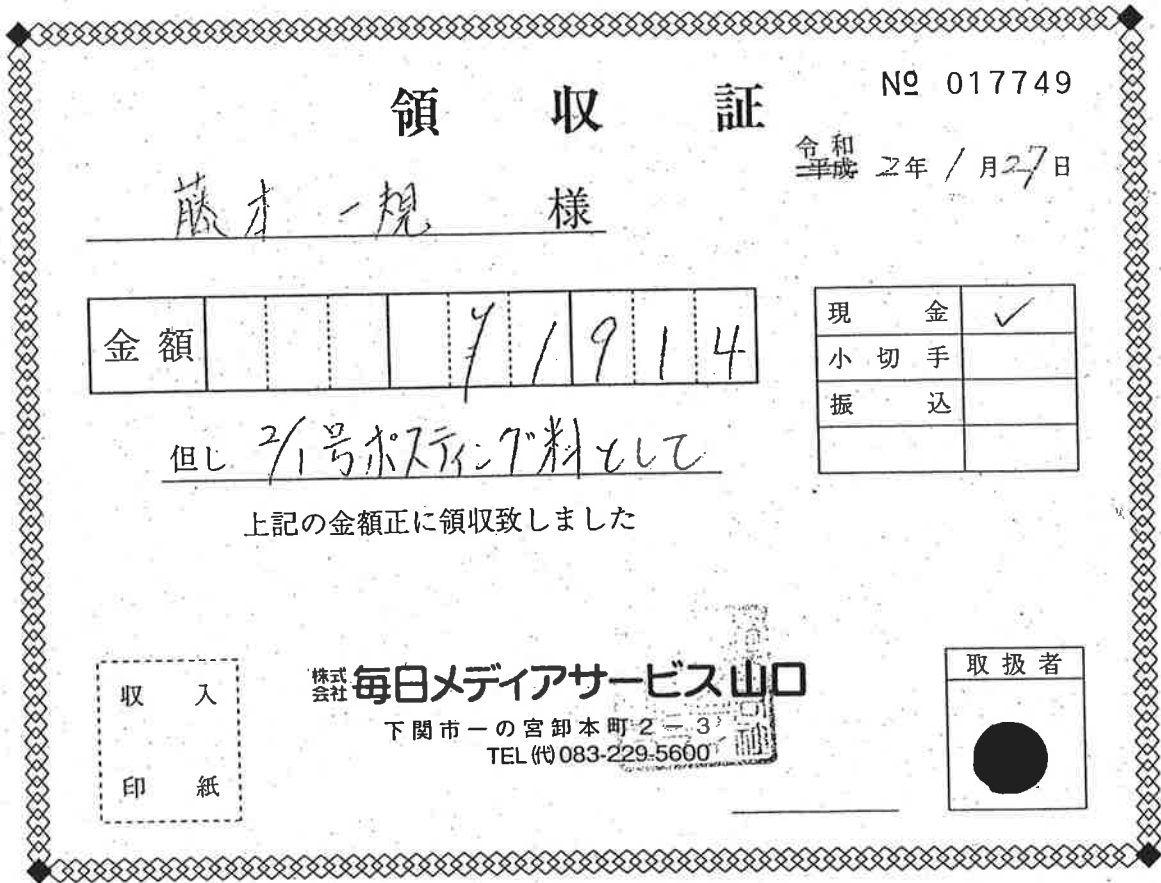 領収証
№ 017749
令和
平成 2年 1月27日
藤本 一規 様
金額 ¥1914
現金 ✓
小切手
振込
但し 2/1号ポスティング料として
上記の金額正に領収致しました
収入
印紙
株式会社 毎日メディアサービス山口
下関市一の宮卸本町2-3
TEL(代)083-229-5600
取扱者